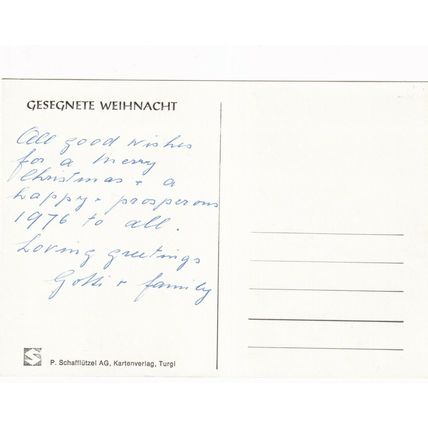 GESEGNETE WEIHNACHT
All good wishes
for a merry
Christmas + a
happy + prosperous
1976 to all.
Loving greetings
Gotti + family
P. Schafflützel AG, Kartenverlag, Turgi